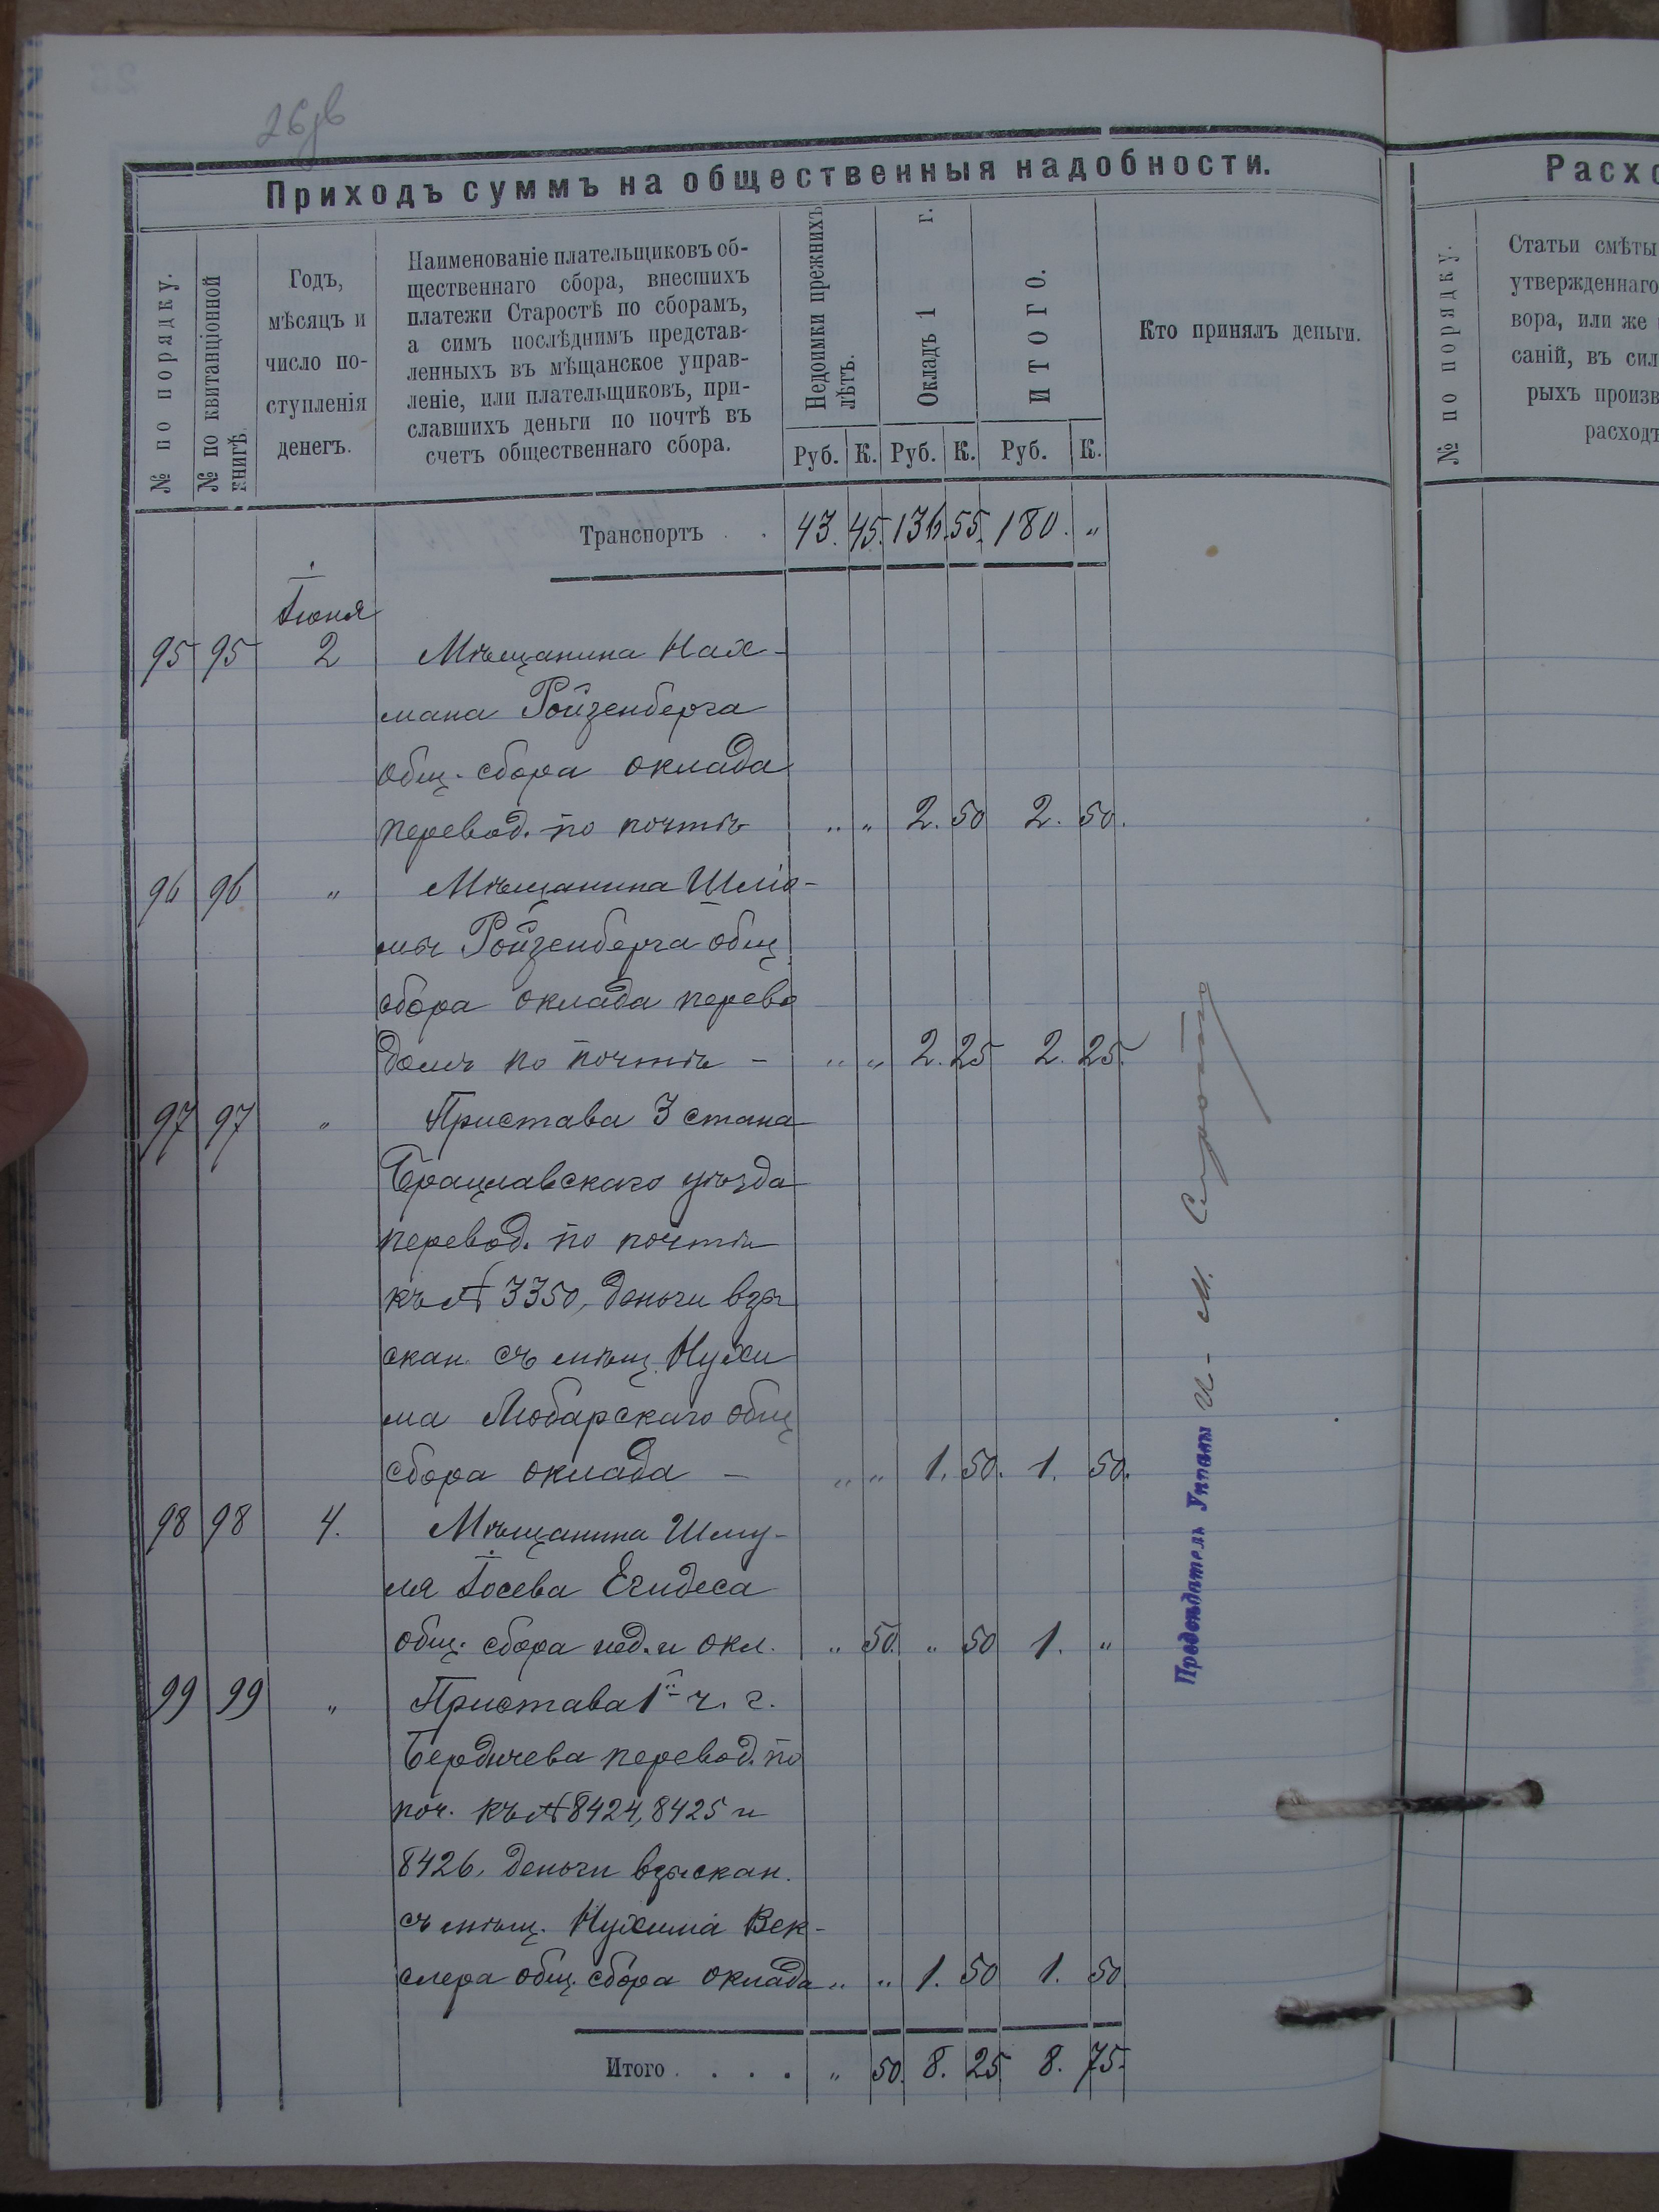 26 зв
Приходъ суммъ на общественныя надобности.
№ по порядку.
№ по квитанціонной книгѣ.
Годъ,
мѣсяцъ и
число по-
ступленія
денегъ.
Наименованіе плательщиковъ об-
щественнаго сбора, внесшихъ
платежи Старостѣ по сборамъ,
а симъ послѣднимъ представ-
ленныхъ въ мѣщанское управ-
леніе, или плательщиковъ, при-
славшихъ деньги по почтѣ въ
счетъ общественнаго сбора.
Недоимки прежнихъ
лѣтъ.
Окладъ 1 г.
ИТОГО.
Кто принялъ деньги.
Руб. К. Руб. К. Руб. К.
Транспортъ . . 43. 45. 136. 55. 180. „
Іюня
95 95 2 Мѣщанина Нах-
мана Ройзенберга
общ. сбора оклада
перевод. по почтѣ „ „ 2. 50 2. 50.
96 96 „ Мѣщанина Шлио-
мы Ройзенберга общ
сбора оклада перево
домъ по почтѣ – „ „ 2. 25 2. 25.
97 97 „ Пристава 3 стана
Брацлавскаго уѣзда
перевод. по почтѣ
къ № 3350, деньги взы
скан. съ мѣщ. Нухи
ма Любарскаго общ
сбора оклада – „ „ 1. 50. 1. 50.
98 98 4. Мѣщанина Шму-
ля Іосева Егидеса
общ. сбора нед. и окл. „ 50. „ 50 1. „
99 99 „ Пристава 1й ч. г.
Бердичева перевод. по
поч. къ № 8424, 8425 и
8426, деньги взыскан.
съ мѣщ. Нухима Век-
слера общ. сбора оклада „ „ 1. 50 1. 50
Итого . . . . „ 50. 8. 25 8. 75.
Предсѣдатель Управы И - М.
Расхо
№ по порядку.
Статьи смѣты
утвержденнаго
вора, или же
саній, въ сил
рыхъ произв
расходъ